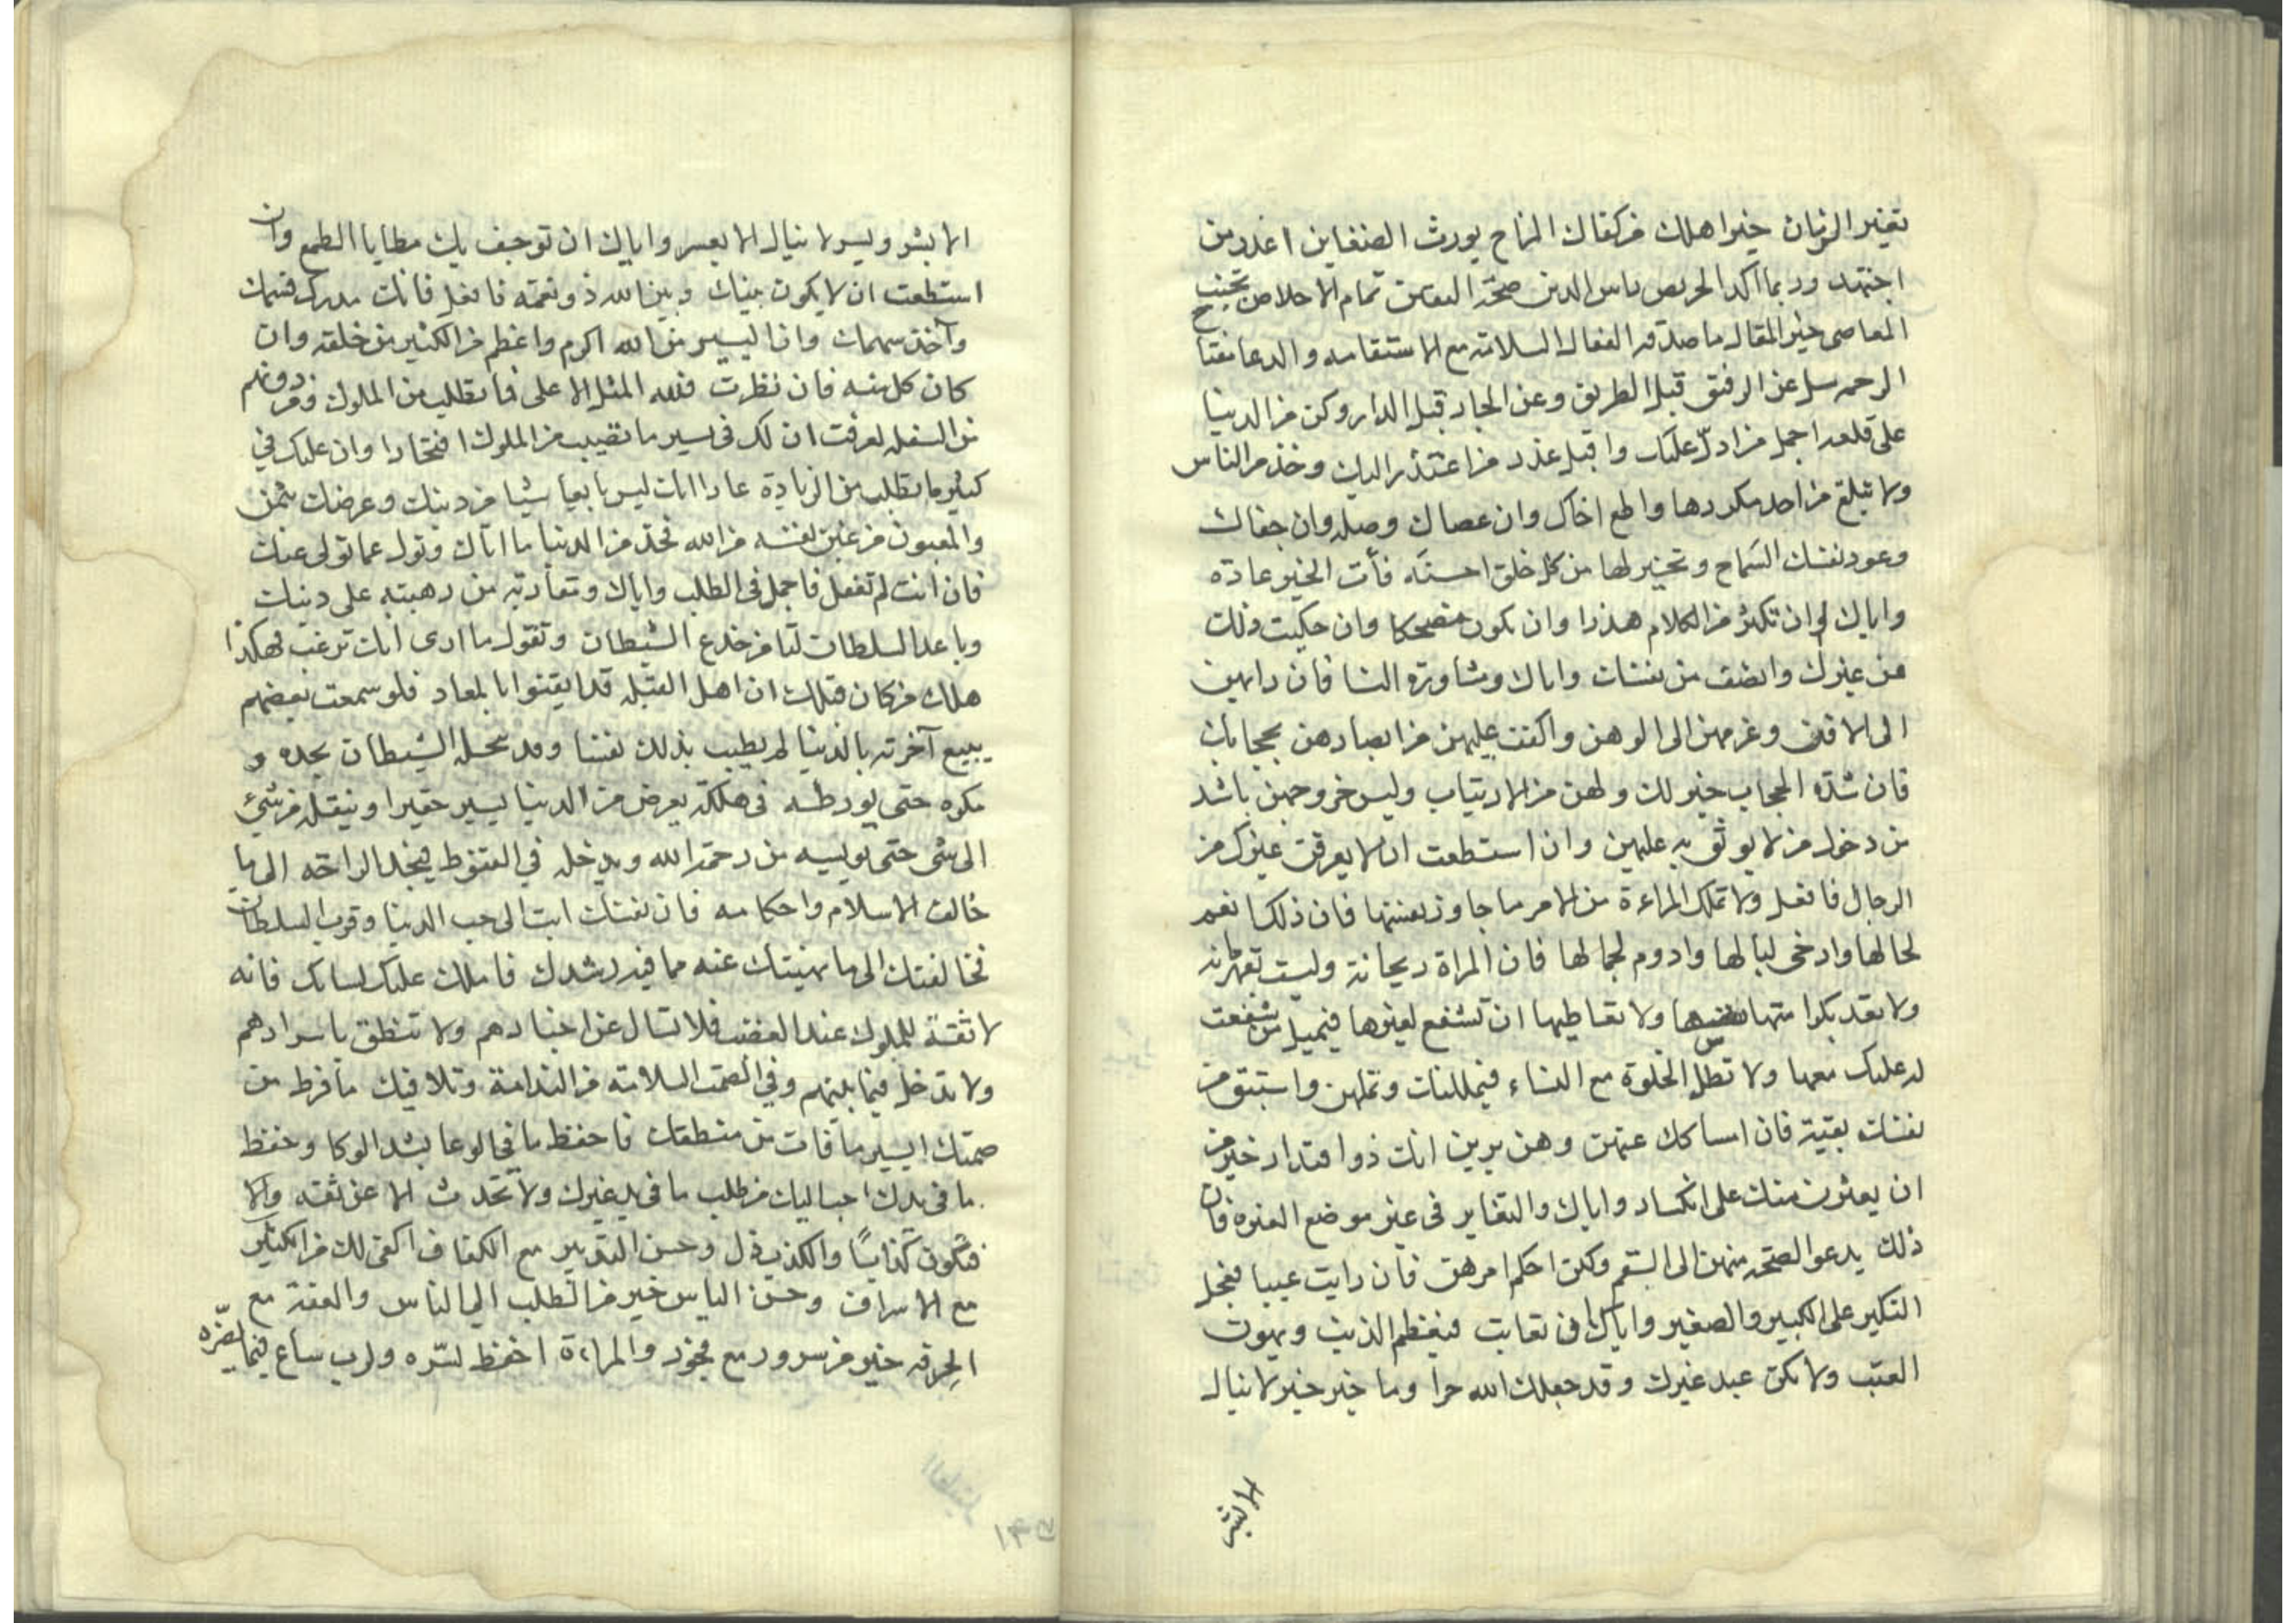 تغير الزمان خير اهلك من كفاك المزاح يورث الضغاين اعذر من
اجتهد وربما اكدا الحريص راس الدين صحة اليقين تمام الاخلاص تجنب
المعاصى خير المقال ما صدقه الفعال السلامة مع الاستقامه والدعا مفتاح
الرحمه سل عن الرفيق قبل الطريق وعن الجار قبل الدار وكن من الدنيا
على قلعه اجمل من ادل عليك واقبل عذر من اعتذر اليك وخذ من الناس
ولا تبلغ من احد مكروها واطع اخاك وان عصاك وصله وان جفاك
وعود نفسك السماح وتخير لها من كل خلق احسنه فأن الخير عادة
واياك ان تكثر من الكلام هذرا وان تكون مضحكا وان حكيت ذلك
عن غيرك وانصف من نفسك واياك ومشاورة النسا فان رايهن
الى الافن وعزمهن الى الوهن واكفف عليهن من ابصارهن بحجابك
فان شدة الحجاب خير لك ولهن من الارتياب وليس خروجهن باشد
من دخول من لا يوثق به عليهن وان استطعت ان لا يعرفن غيرك من
الرجال فافعل ولا تملك المراءة من الامر ما جاوز نفسها فان ذلك انعم
لحالها وارخى لبالها وادوم لجمالها فان المراة ريحانة وليست بقهرمانه
ولا تعد بكرامتها نفسها ولا تعاطيها ان تشفع لغيرها فيميل من شفعت
له عليك معها ولا تطل الخلوة مع النساء فيمللنك وتملهن واستبق من
نفسك بقية فان امساكك عنهن وهن يرين انك ذو اقتدار خير من
ان يعثرن منك على انكسار واياك والتغاير فى غير موضع الغيره فان
ذلك يدعو الصحة منهن الى السقم ولكن احكم امرهن فان رايت عيبا فعجل
النكير على الكبير والصغير واياك ان تعاتب فيعظم الذنب ويهون
العتب ولا تكن عبد غيرك وقد جعلك الله حرا وما خير خير لا ينال
الا بشر
الا بشر ويسر لا ينال الا بعسر واياك ان توجف بك مطايا الطمع وان
استطعت ان لا يكون بينك وبين الله ذو نعمة فافعل فانك مدرك قسمك
وآخذ سهمك وان اليسير من الله اكرم واعظم من الكثير من خلقه وان
كان كل منه فان نظرت فلله المثل الاعلى فيما تطلب من الملوك ومن دونهم
من السفله لعرفت ان لك فى يسير ما تصيب من الملوك افتخارا وان عليك في
كثير ما تطلب من الزيادة عارا انك ليس بايعا شيا من دينك وعرضك بثمن
والمغبون من غبن نفسه من الله فخذ من الدنيا ما اتاك وتول عما تولى عنك
فان انت لم تفعل فاجمل فى الطلب واياك ومقاربة من رهبته على دينك
وباعد السلطان لتامن خدع الشيطان وتقول ما ارى انك ترغب فهكذا
هلك من كان قبلك ان اهل القبله قد ايقنوا بالمعاد فلو سمعت بعضهم
يبيع آخرته بالدنيا لم يطيب بذلك نفسا وقد يتخيله الشيطان بخدعه و
مكره حتى يورطه فى هلكة بعرض من الدنيا يسير حقير وينقله من شيء
الى شى حتى يويسه من رحمة الله ويدخله في القنوط فيجد الراحة الى ما
خالف الاسلام واحكامه فان نفسك ابت الى حب الدنيا وقرب السلطان
فخالفتك الى ما نهيتك عنه مما فيه رشدك فاملك عليك لسانك فانه
لا ثقة للملوك عند الغضب فلا تسال عن اخبارهم ولا تنطق باسرارهم
ولا تدخل فيما بينهم وفي الصمت السلامة من الندامة وتلافيك ما فرط من
صمتك ايسر ما فات من منطقك فاحفظ ما في الوعا بشد الوكا وحفظ
ما فى يدك احب اليك من طلب ما فى يد غيرك ولا تحدث الا عن ثقة والا
فتكون كذابًا والكذب ذل وحسن التدبير مع الكفاف اكفى لك من الكثير
مع الاسراف وحسن الياس خير من الطلب الى الناس والعفة مع
الحرفه خير من سرور مع فجور والمراءة احفظ لسره ولرب ساع فيما يضره
١٣٥